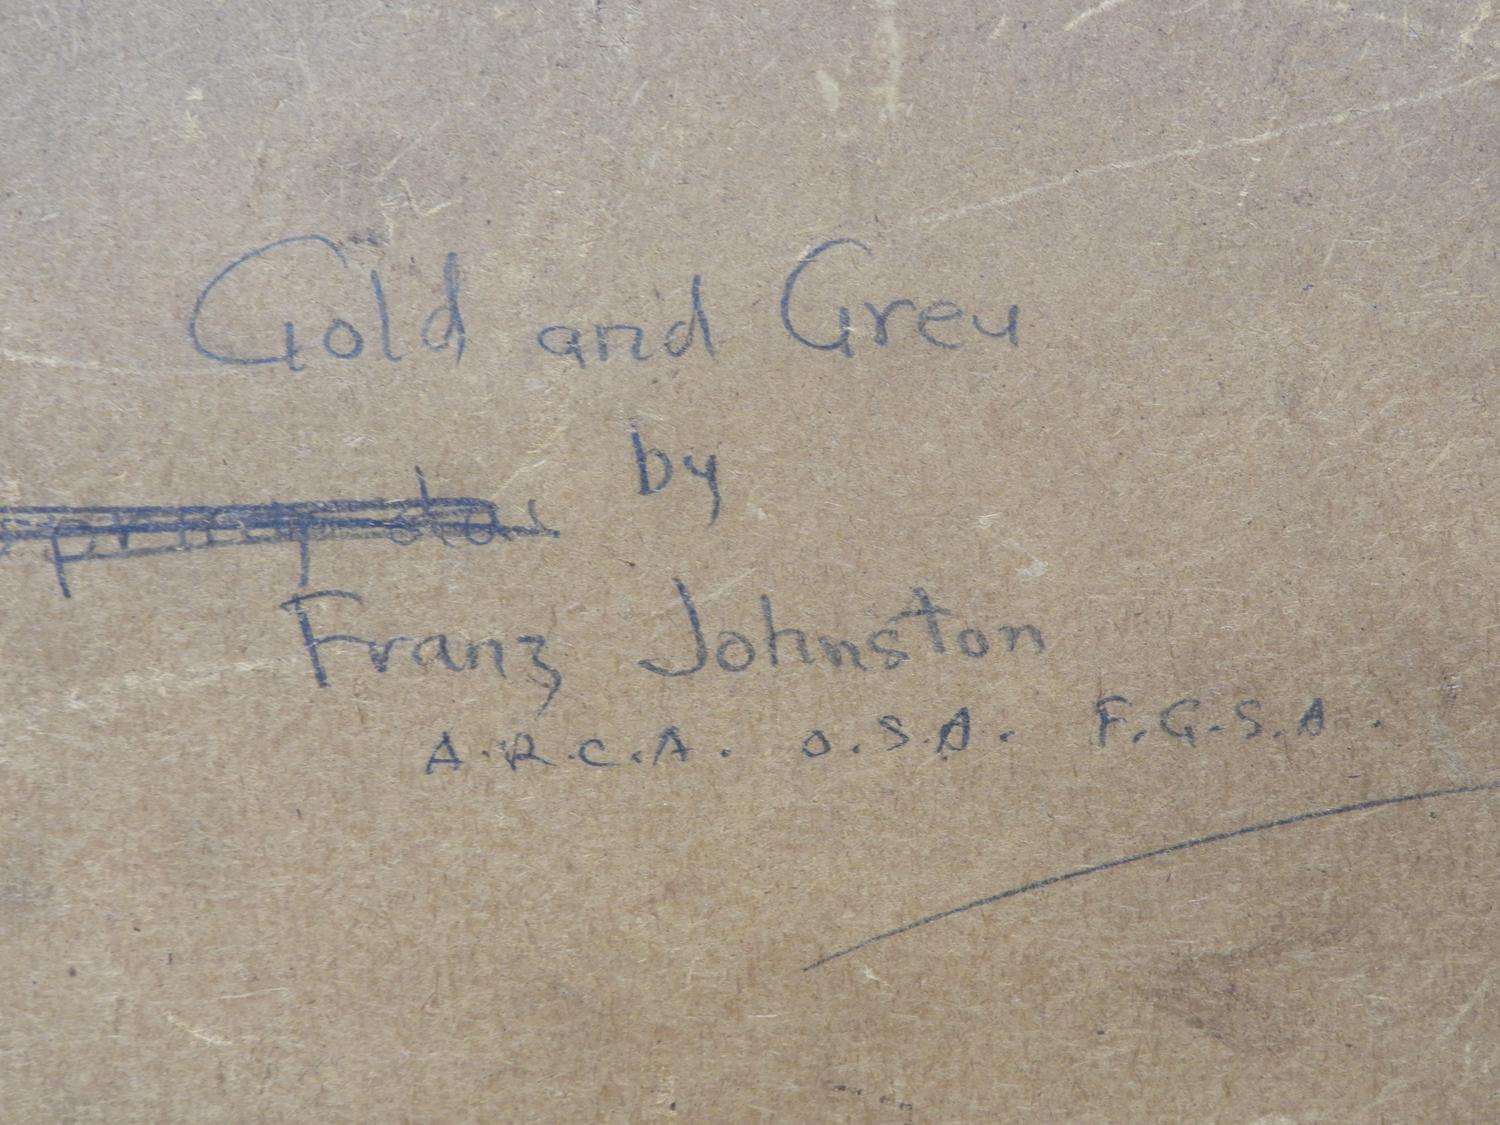 Gold and Grey
by
Franz Johnston
A.R.C.A. O.S.A. F.G.S.A.